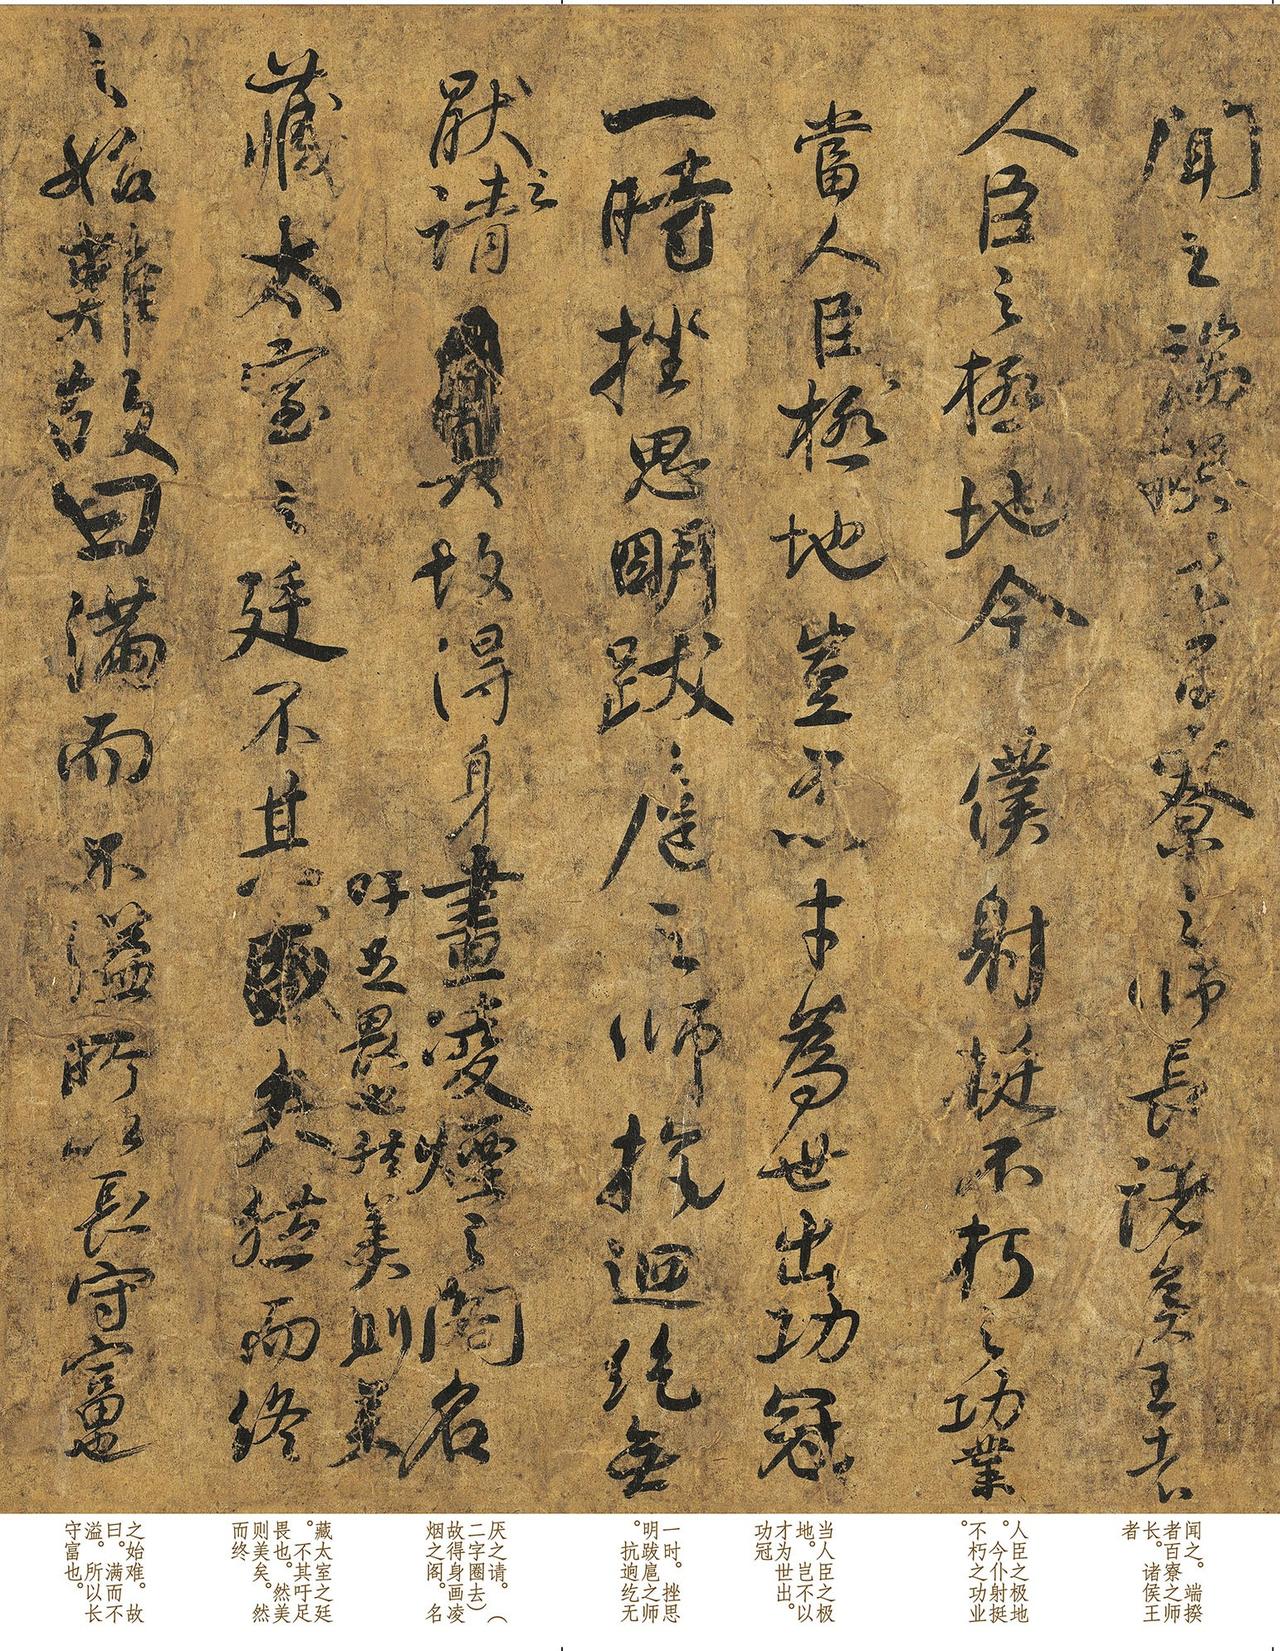 闻之端揆者百寮之師長諸矦王者
人臣之極地今僕射挺不朽之功業
當人臣極地豈不以才為世出功冠
一時挫思明跋之扈之師抗迴紇無
厭之請
故得身畫凌煙之閣名
藏太室之廷不其盛矣然而終
吁足畏也然美則美矣
之始難故曰滿而不溢所以長守富也
闻之。端揆
者百寮之师
长。诸侯王
者
人臣之极地
。今仆射挺
不朽之功业
。
当人臣之极
地。岂不以
才为世出。
功冠
一时。挫思
明跋扈之师
。抗迴纥无
厌之请。（
二字圈去）
故得身画凌
烟之阁。名
藏太室之廷
。不其吁足
畏也。然美
则美矣。然
而终
之始难。故
曰。满而不
溢。所以长
守富也。